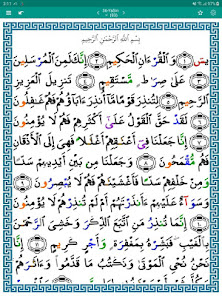 3:11
36-YaSin
بِسْمِ ٱللَّهِ ٱلرَّحْمَٰنِ ٱلرَّحِيمِ
يسٓ ١ وَٱلْقُرْءَانِ ٱلْحَكِيمِ ٢ إِنَّكَ لَمِنَ ٱلْمُرْسَلِينَ
٣ عَلَىٰ صِرَٰطٍ مُّسْتَقِيمٍ ٤ تَنزِيلَ ٱلْعَزِيزِ
ٱلرَّحِيمِ ٥ لِتُنذِرَ قَوْمًا مَّآ أُنذِرَ ءَابَآؤُهُمْ فَهُمْ غَٰفِلُونَ
٦ لَقَدْ حَقَّ ٱلْقَوْلُ عَلَىٰٓ أَكْثَرِهِمْ فَهُمْ لَا يُؤْمِنُونَ
٧ إِنَّا جَعَلْنَا فِىٓ أَعْنَٰقِهِمْ أَغْلَٰلًا فَهِىَ إِلَى ٱلْأَذْقَانِ
فَهُم مُّقْمَحُونَ ٨ وَجَعَلْنَا مِنۢ بَيْنِ أَيْدِيهِمْ سَدًّا
وَمِنْ خَلْفِهِمْ سَدًّا فَأَغْشَيْنَٰهُمْ فَهُمْ لَا يُبْصِرُونَ ٩
وَسَوَآءٌ عَلَيْهِمْ ءَأَنذَرْتَهُمْ أَمْ لَمْ تُنذِرْهُمْ لَا يُؤْمِنُونَ
١٠ إِنَّمَا تُنذِرُ مَنِ ٱتَّبَعَ ٱلذِّكْرَ وَخَشِىَ ٱلرَّحْمَٰنَ
بِٱلْغَيْبِ فَبَشِّرْهُ بِمَغْفِرَةٍ وَأَجْرٍ كَرِيمٍ ١١ إِنَّا
نَحْنُ نُحْىِ ٱلْمَوْتَىٰ وَنَكْتُبُ مَا قَدَّمُوا۟ وَءَاثَٰرَهُمْ